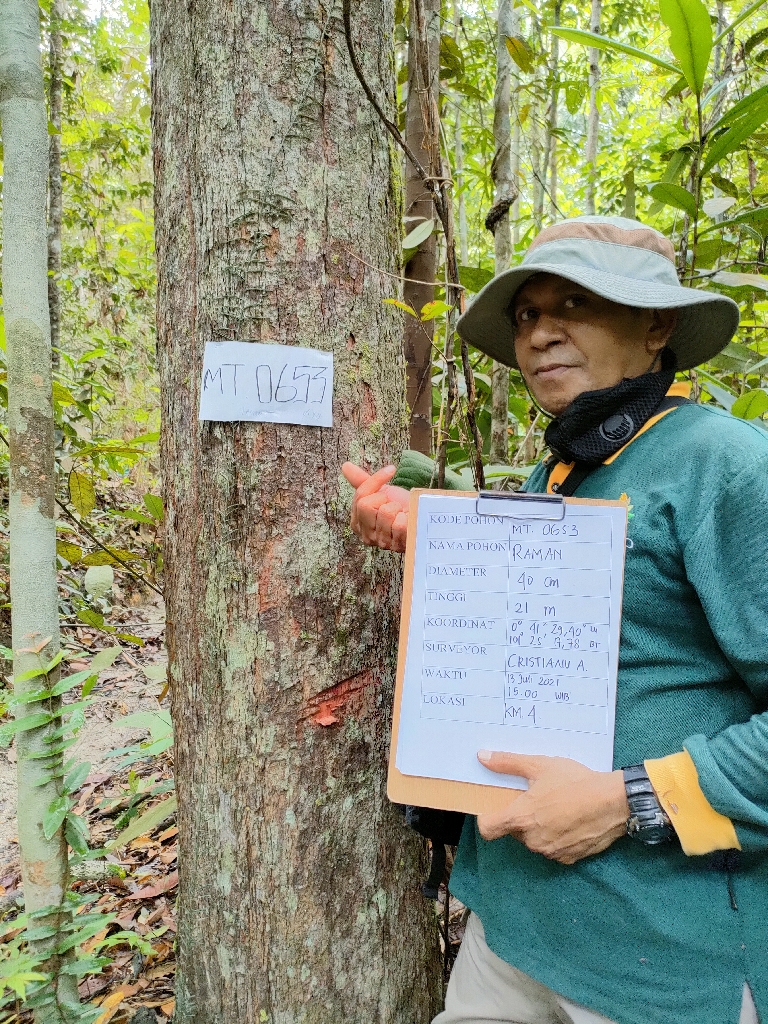 MT 0653
KODE POHON MT. 0653
NAMA POHON RAMAN
DIAMETER 40 cm
TINGGI 21 m
KOORDENAT 0° 41', 29,40"
101° 25' 9,78 BT
SURVEYOR CRISTIANU A.
WAKTU 13 Juli 2021
15.00 WIB
LOKASI KM. 4